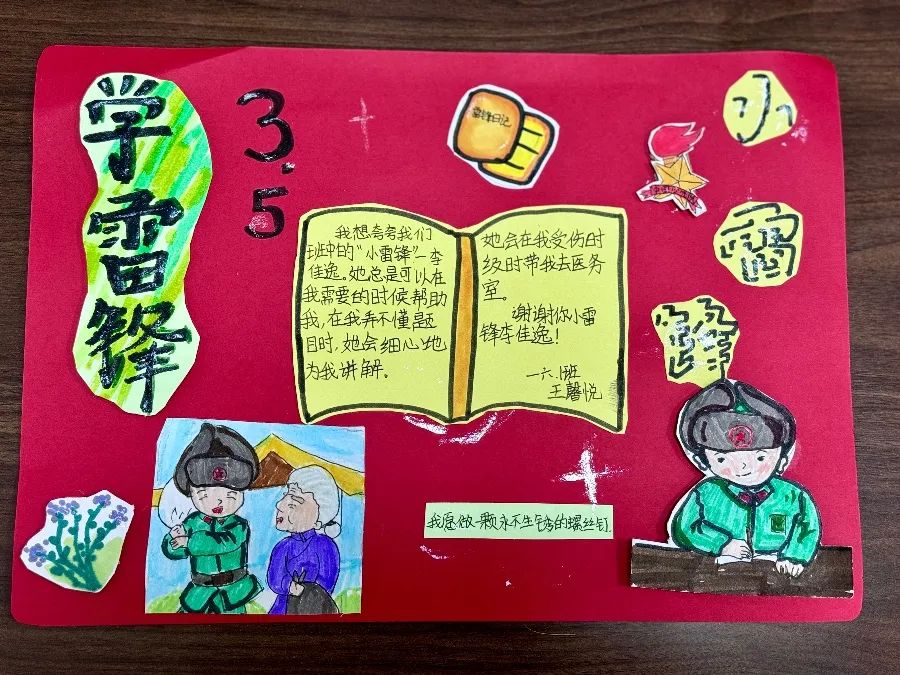 学雷锋
3.5
雷锋日记
小雷锋
我想夸夸我们
班中的“小雷锋”—李
佳逸。她总是可以在
我需要的时候帮助
我,在我弄不懂题
目时,她会细心地
为我讲解。
她会在我受伤时
级时带我去医务
室。
谢谢你小雷
锋李佳逸!
一六.1班
王馨悦
我愿做一颗永不生锈的螺丝钉